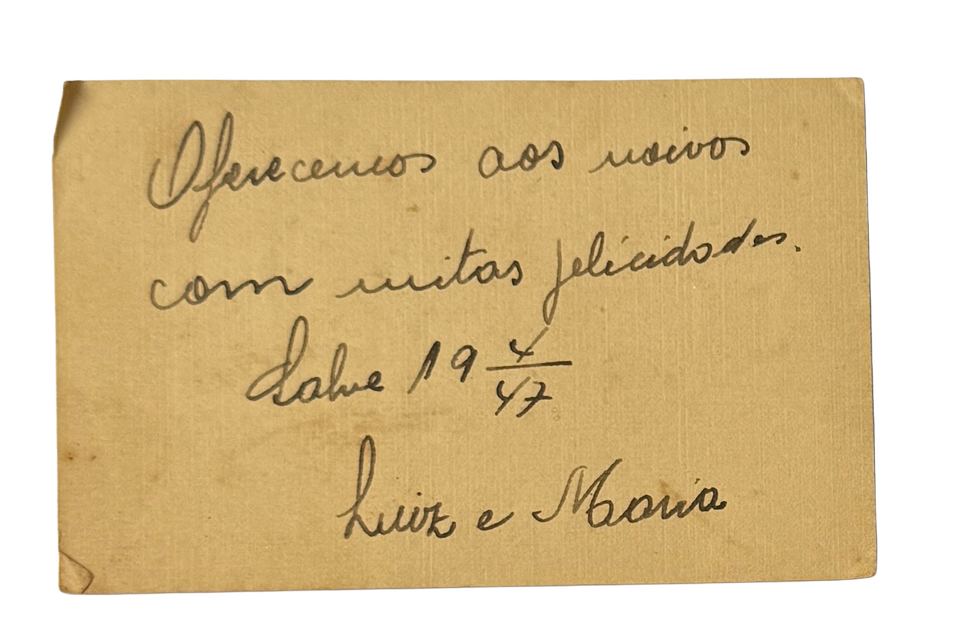 Oferecemos aos noivos
com muitas felicidades.
Salve 19 4/47
Luiz e Maria